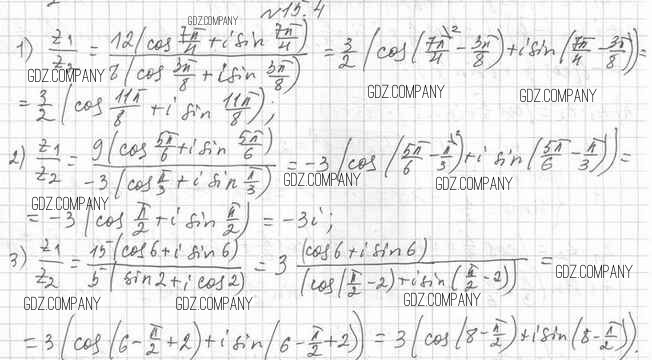 №15.4
1) z₁/z₂ = 12(cos 7π/4 + i sin 7π/4) / 8(cos 3π/8 + i sin 3π/8) = 3/2 (cos(7π/4\² − 3π/8) + i sin(7π/4 − 3π/8)) =
= 3/2 (cos 11π/8 + i sin 11π/8);
2) z₁/z₂ = 9(cos 5π/6 + i sin 5π/6) / −3(cos π/3 + i sin π/3) = −3 (cos(5π/6 − π/3\²) + i sin(5π/6 − π/3)) =
= −3(cos π/2 + i sin π/2) = −3i;
3) z₁/z₂ = 15(cos 6 + i sin 6) / 5(sin 2 + i cos 2) = 3 (cos 6 + i sin 6) / (cos(π/2 − 2) + i sin(π/2 − 2)) =
= 3(cos(6 − π/2 + 2) + i sin(6 − π/2 + 2)) = 3(cos(8 − π/2) + i sin(8 − π/2)).
GDZ.COMPANY
GDZ.COMPANY
GDZ.COMPANY
GDZ.COMPANY
GDZ.COMPANY
GDZ.COMPANY
GDZ.COMPANY
GDZ.COMPANY
GDZ.COMPANY
GDZ.COMPANY
GDZ.COMPANY